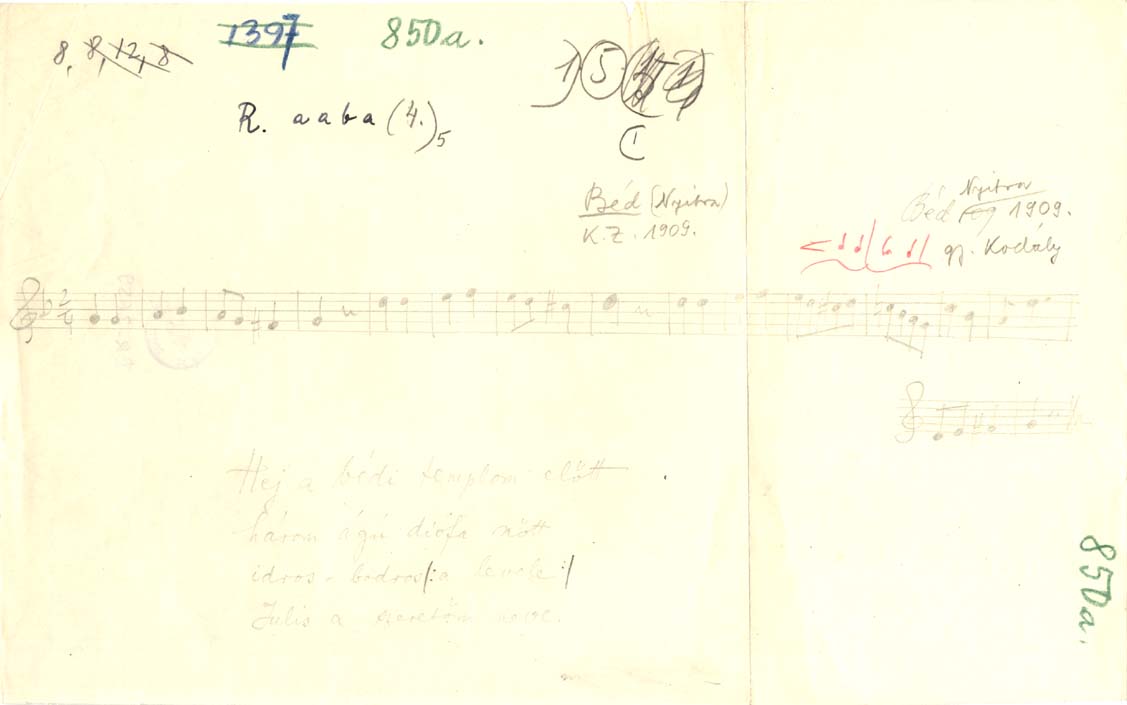 8, 8, 12, 8
1397
850a.
1) 5
R. a a b a (4.)5
Béd (Nyitra)
K.Z. 1909.
Nyitra
Béd 1909.
gy. Kodály
2
4
Hej a bédi templom előtt
három ágú diófa nőtt
idros-bodros /: a levele :/
Julis a szeretőm neve.
850a.